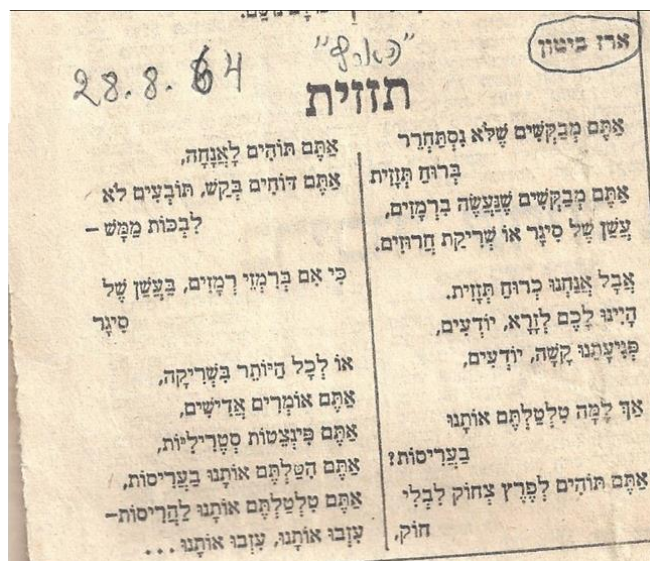 ארז ביטון
"הארץ"
28.8.64
תזזית
אַתֶּם מְבַקְּשִׁים שֶׁלֹּא נִסְתַּחְרֵר
בְּרוּחַ תְּזָזִית
אַתֶּם מְבַקְּשִׁים שֶׁנַּעֲשֶׂה בִּרְמָזִים,
עֲשַׁן שֶׁל סִיגָר אוֹ שְׁרִיקַת חֲרוּזִים.
אֲבָל אֲנַחְנוּ כְּרוּחַ תְּזָזִית.
הָיִינוּ לָכֶם לְזָרָא, יוֹדְעִים,
פְּגִיעָתֵנוּ קָשָׁה, יוֹדְעִים,
אַךְ לָמָּה טִלְטַלְתֶּם אוֹתָנוּ
בַּעֲרִיסוֹת?
אַתֶּם תּוֹהִים לְפֶרֶץ צְחוֹק לִבְלִי
חוֹק,
אַתֶּם תּוֹהִים לָאֲנָחָה,
אַתֶּם דּוֹחִים בְּקַשׁ, תּוֹבְעִים לֹא
לִבְכּוֹת מַמָּשׁ –
כִּי אִם בְּרִמְזֵי רְמָזִים, בַּעֲשַׁן שֶׁל
סִיגָר
אוֹ לְכָל הַיּוֹתֵר בִּשְׁרִיקָה,
אַתֶּם אוֹמְרִים אֲדִישִׁים,
אַתֶּם פִּינְצֶטוֹת סְטֶרִילִיּוֹת,
אַתֶּם הִטַּלְתֶּם אוֹתָנוּ בַּעֲרִיסוֹת,
אַתֶּם טִלְטַלְתֶּם אוֹתָנוּ לַהֲרִיסוֹת–
עִזְבוּ אוֹתָנוּ, עִזְבוּ אוֹתָנוּ ...